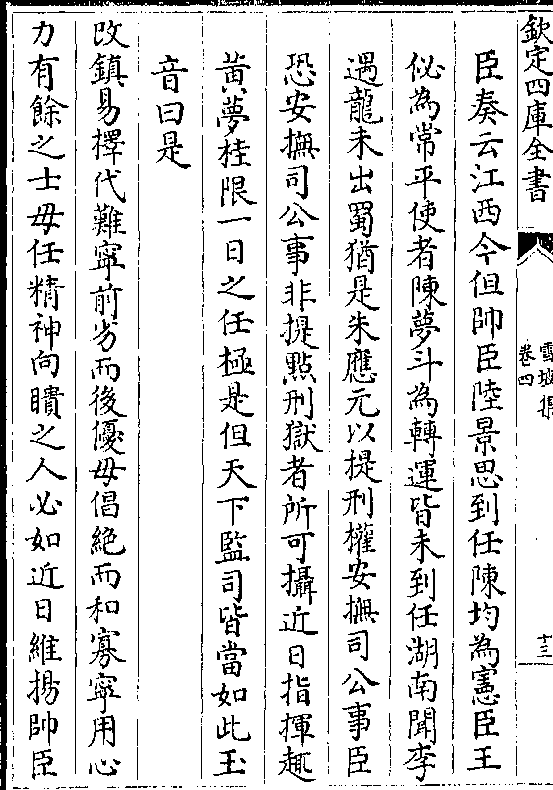 欽定四庫全書
雪坡集
卷四
十三
臣奏云江西今但帥臣陸景思到任陳均為憲臣王
佖為常平使者陳夢斗為轉運皆未到任湖南聞李
遇龍未出蜀猶是朱應元以提刑權安撫司公事臣
恐安撫司公事非提點刑獄者所可攝近日指揮趣
黄夢桂限一日之任極是但天下監司皆當如此玉
音曰是
改鎮易擇代難寧前劣而後優毋倡絶而和寡寧用心
力有餘之士毋任精神向瞶之人必如近日維揚帥臣